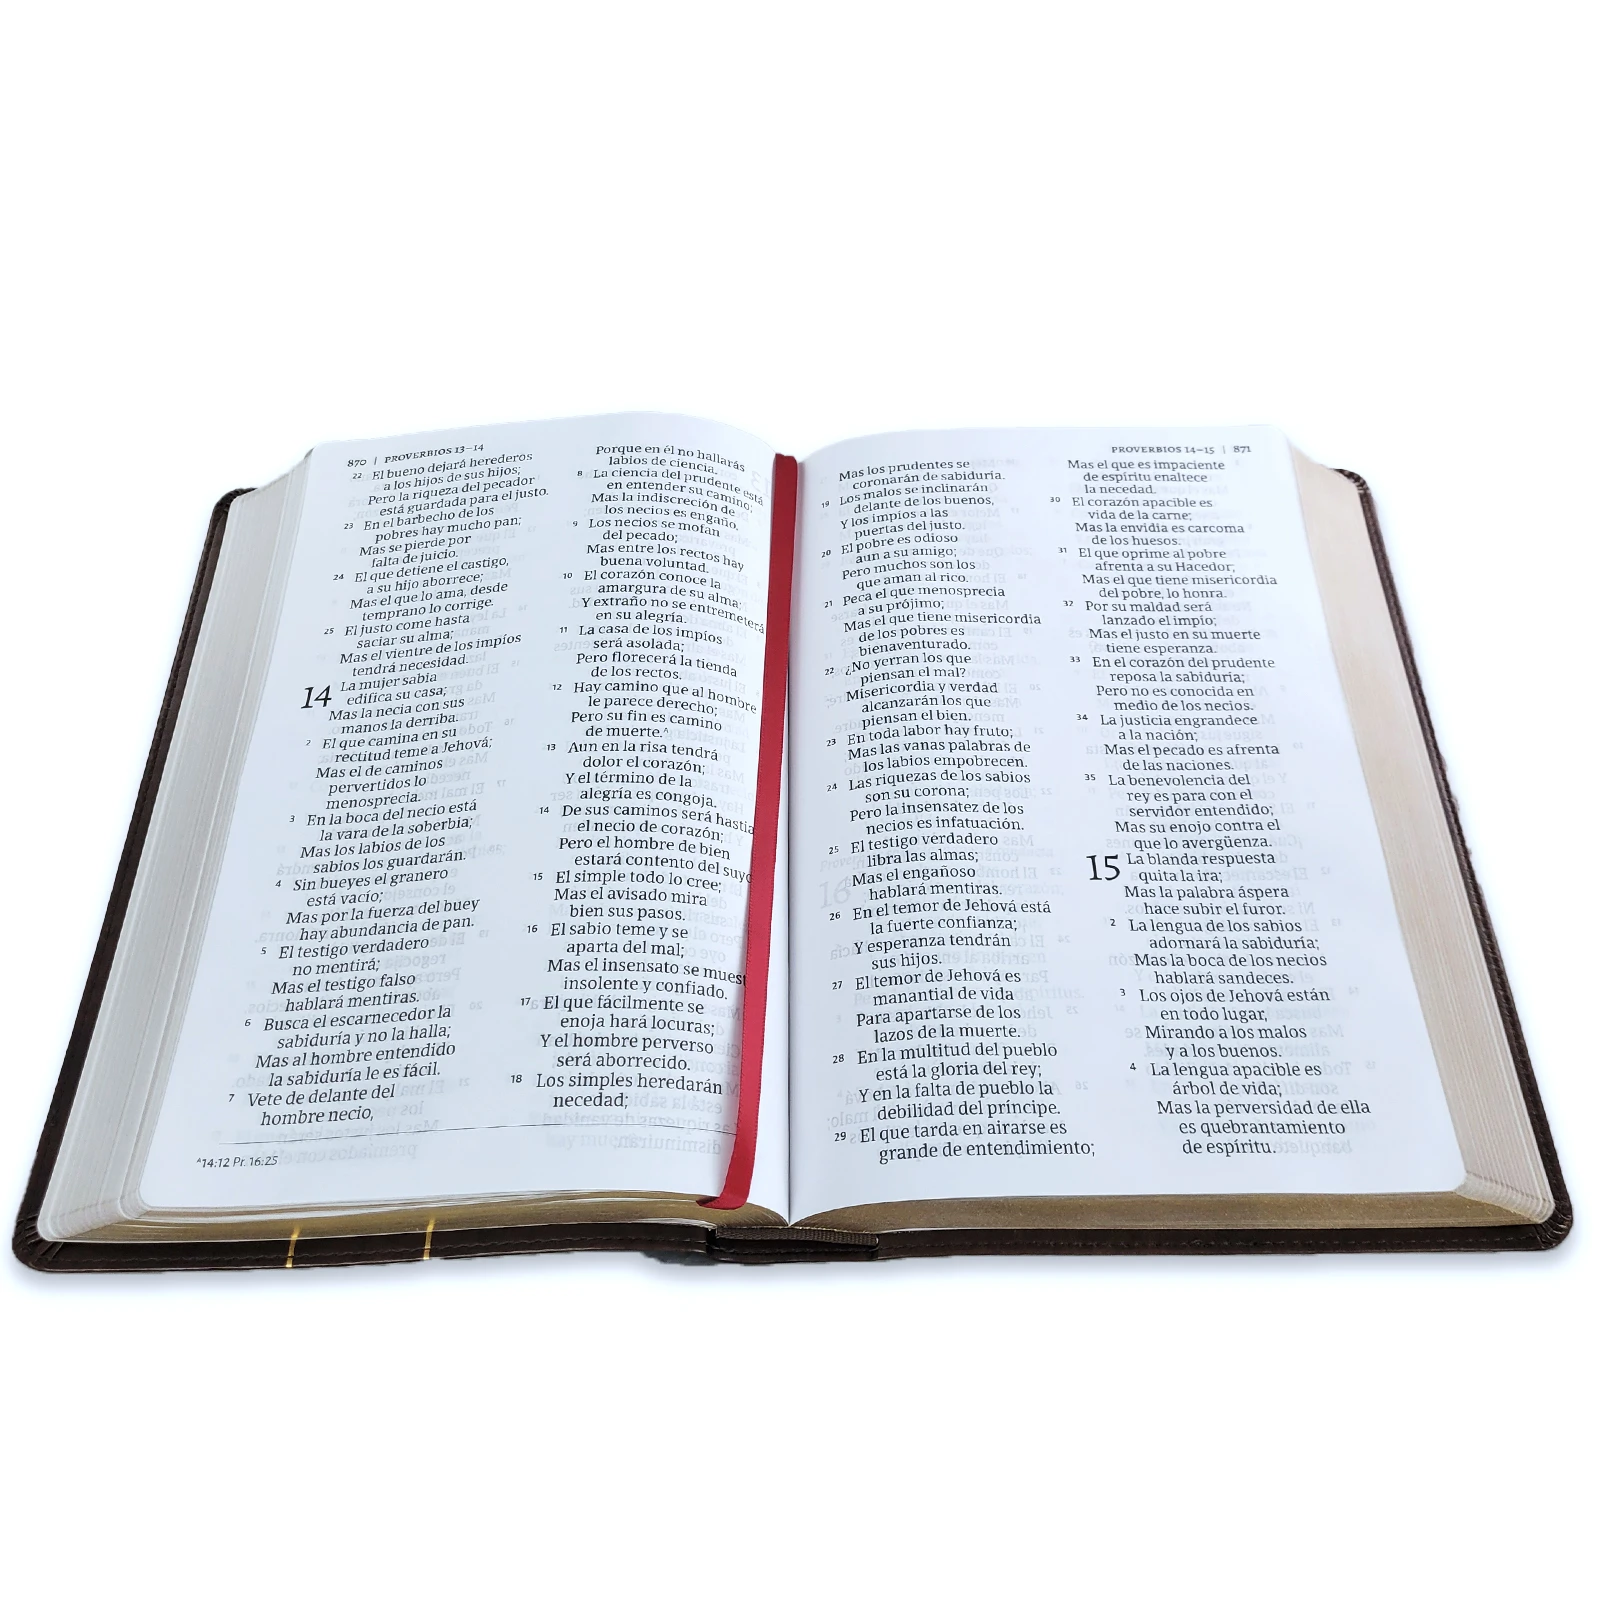 870 | PROVERBIOS 13–14
22 El bueno dejará herederos
a los hijos de sus hijos;
Pero la riqueza del pecador
está guardada para el justo.
23 En el barbecho de los
pobres hay mucho pan;
Mas se pierde por
falta de juicio.
24 El que detiene el castigo,
a su hijo aborrece;
Mas el que lo ama, desde
temprano lo corrige.
25 El justo come hasta
saciar su alma;
Mas el vientre de los impíos
tendrá necesidad.
14 La mujer sabia
edifica su casa;
Mas la necia con sus
manos la derriba.
2 El que camina en su
rectitud teme a Jehová;
Mas el de caminos
pervertidos lo
menosprecia.
3 En la boca del necio está
la vara de la soberbia;
Mas los labios de los
sabios los guardarán.
4 Sin bueyes el granero
está vacío;
Mas por la fuerza del buey
hay abundancia de pan.
5 El testigo verdadero
no mentirá;
Mas el testigo falso
hablará mentiras.
6 Busca el escarnecedor la
sabiduría y no la halla;
Mas al hombre entendido
la sabiduría le es fácil.
7 Vete de delante del
hombre necio,
Porque en él no hallarás
labios de ciencia.
8 La ciencia del prudente está
en entender su camino;
Mas la indiscreción de
los necios es engaño.
9 Los necios se mofan
del pecado;
Mas entre los rectos hay
buena voluntad.
10 El corazón conoce la
amargura de su alma;
Y extraño no se entremeterá
en su alegría.
11 La casa de los impíos
será asolada;
Pero florecerá la tienda
de los rectos.
12 Hay camino que al hombre
le parece derecho;
Pero su fin es camino
de muerte.A
13 Aun en la risa tendrá
dolor el corazón;
Y el término de la
alegría es congoja.
14 De sus caminos será hastia
el necio de corazón;
Pero el hombre de bien
estará contento del suyo
15 El simple todo lo cree;
Mas el avisado mira
bien sus pasos.
16 El sabio teme y se
aparta del mal;
Mas el insensato se muest
insolente y confiado.
17 El que fácilmente se
enoja hará locuras;
Y el hombre perverso
será aborrecido.
18 Los simples heredarán
necedad;
A14:12 Pr. 16:25
PROVERBIOS 14–15 | 871
Mas los prudentes se
coronarán de sabiduría.
19 Los malos se inclinarán
delante de los buenos,
Y los impíos a las
puertas del justo.
20 El pobre es odioso
aun a su amigo;
Pero muchos son los
que aman al rico.
21 Peca el que menosprecia
a su prójimo;
Mas el que tiene misericordia
de los pobres es
bienaventurado.
22 ¿No yerran los que
piensan el mal?
Misericordia y verdad
alcanzarán los que
piensan el bien.
23 En toda labor hay fruto;
Mas las vanas palabras de
los labios empobrecen.
24 Las riquezas de los sabios
son su corona;
Pero la insensatez de los
necios es infatuación.
25 El testigo verdadero
libra las almas;
Mas el engañoso
hablará mentiras.
26 En el temor de Jehová está
la fuerte confianza;
Y esperanza tendrán
sus hijos.
27 El temor de Jehová es
manantial de vida
Para apartarse de los
lazos de la muerte.
28 En la multitud del pueblo
está la gloria del rey;
Y en la falta de pueblo la
debilidad del príncipe.
29 El que tarda en airarse es
grande de entendimiento;
Mas el que es impaciente
de espíritu enaltece
la necedad.
30 El corazón apacible es
vida de la carne;
Mas la envidia es carcoma
de los huesos.
31 El que oprime al pobre
afrenta a su Hacedor;
Mas el que tiene misericordia
del pobre, lo honra.
32 Por su maldad será
lanzado el impío;
Mas el justo en su muerte
tiene esperanza.
33 En el corazón del prudente
reposa la sabiduría;
Pero no es conocida en
medio de los necios.
34 La justicia engrandece
a la nación;
Mas el pecado es afrenta
de las naciones.
35 La benevolencia del
rey es para con el
servidor entendido;
Mas su enojo contra el
que lo avergüenza.
15 La blanda respuesta
quita la ira;
Mas la palabra áspera
hace subir el furor.
2 La lengua de los sabios
adornará la sabiduría;
Mas la boca de los necios
hablará sandeces.
3 Los ojos de Jehová están
en todo lugar,
Mirando a los malos
y a los buenos.
4 La lengua apacible es
árbol de vida;
Mas la perversidad de ella
es quebrantamiento
de espíritu.